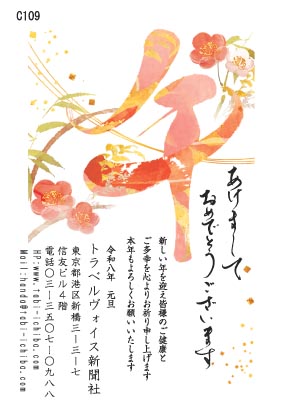 C109
あけまして
おめでとうございます
新しい年を迎え皆様のご健康と
ご多幸を心よりお祈り申し上げます
本年もよろしくお願いいたします
令和八年 元旦
トラベルヴォイス新聞社
東京都港区新橋三ー三ー七
信友ビル4階
電話〇三ー三五〇七ー〇九八八
HP:www.tabi-ichiba.com
Mail:handa@tabi-ichiba.com